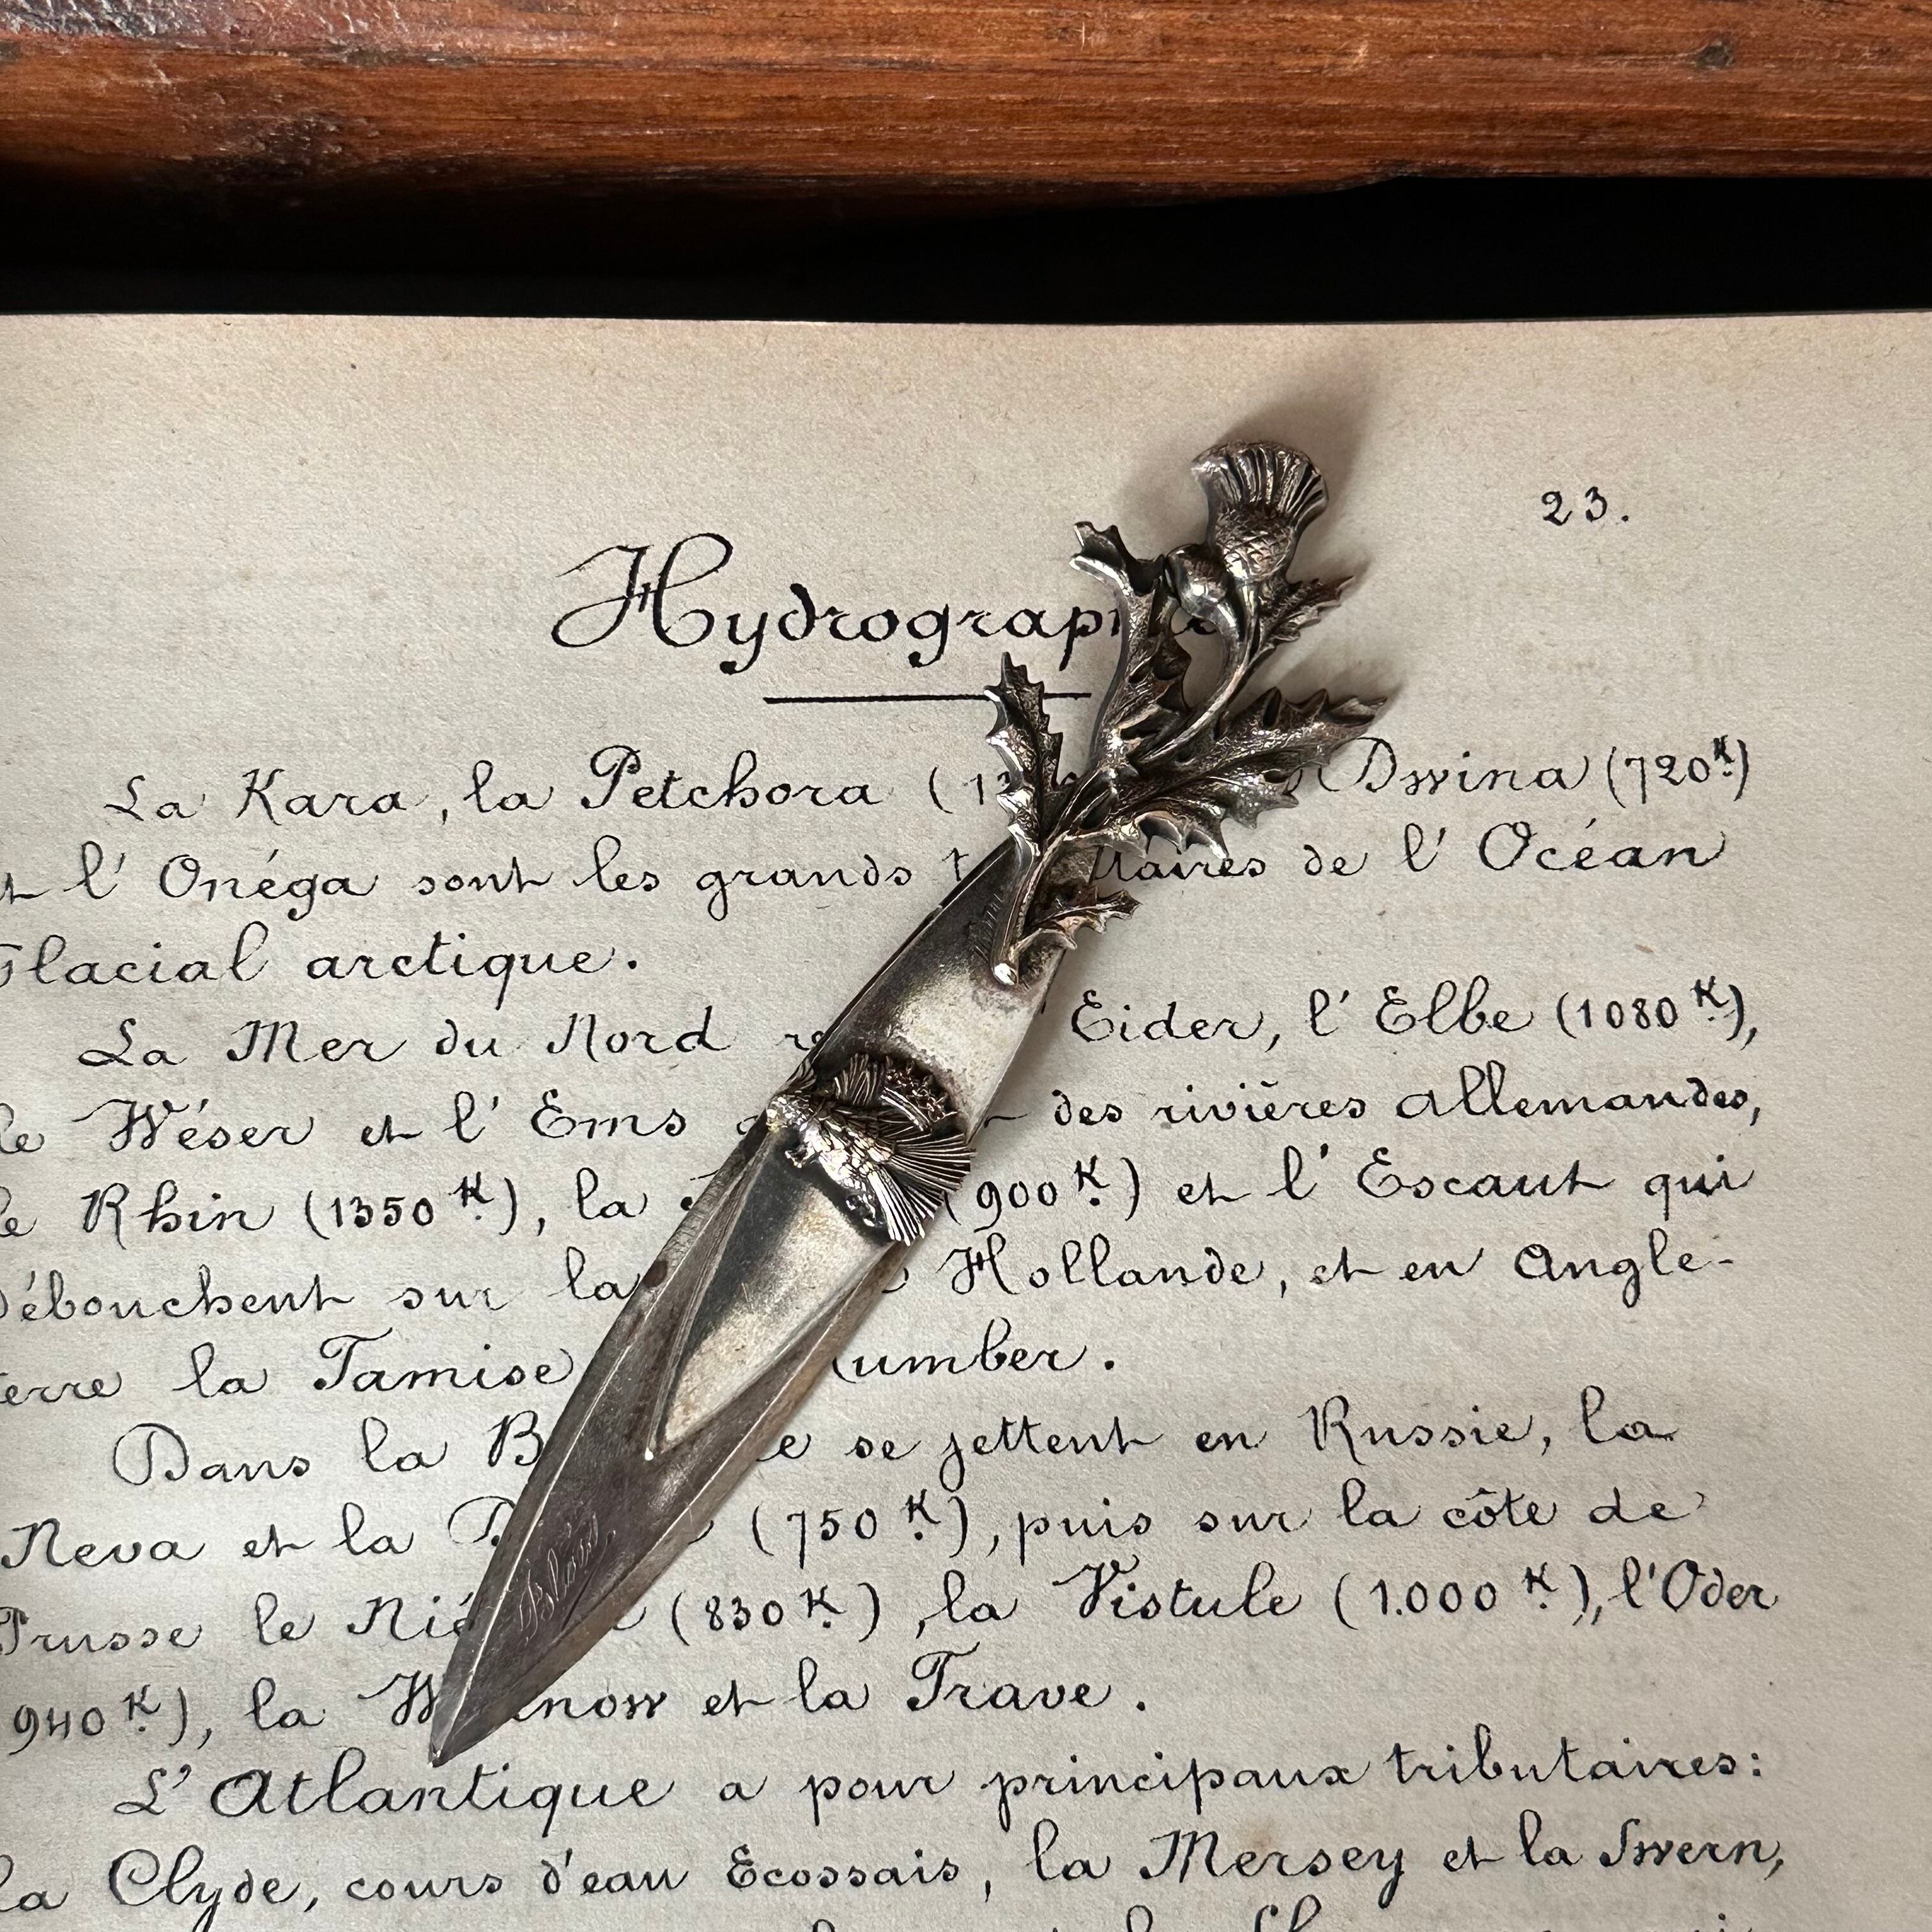 23.
Hydrographie
La Kara, la Petchora (13 Dwina (720 K.)
l' Onéga sont les grands tributaires de l' Océan
Glacial arctique.
La Mer du Nord Eider, l' Elbe (1080 K.),
le Wéser et l' Ems des rivières allemandes,
le Rhin (1350 K.), la (900 K.) et l' Escaut qui
débouchent sur la Hollande, et en Angle-
terre la Tamise Humber.
Dans la se jettent en Russie, la
Neva et la (750 K.), puis sur la côte de
Prusse le (830 K.), la Vistule (1.000 K.), l'Oder
940 K.), la et la Trave.
L' Atlantique a pour principaux tributaires:
la Clyde, cours d'eau Ecossais, la Mersey et la Swern,
Blois